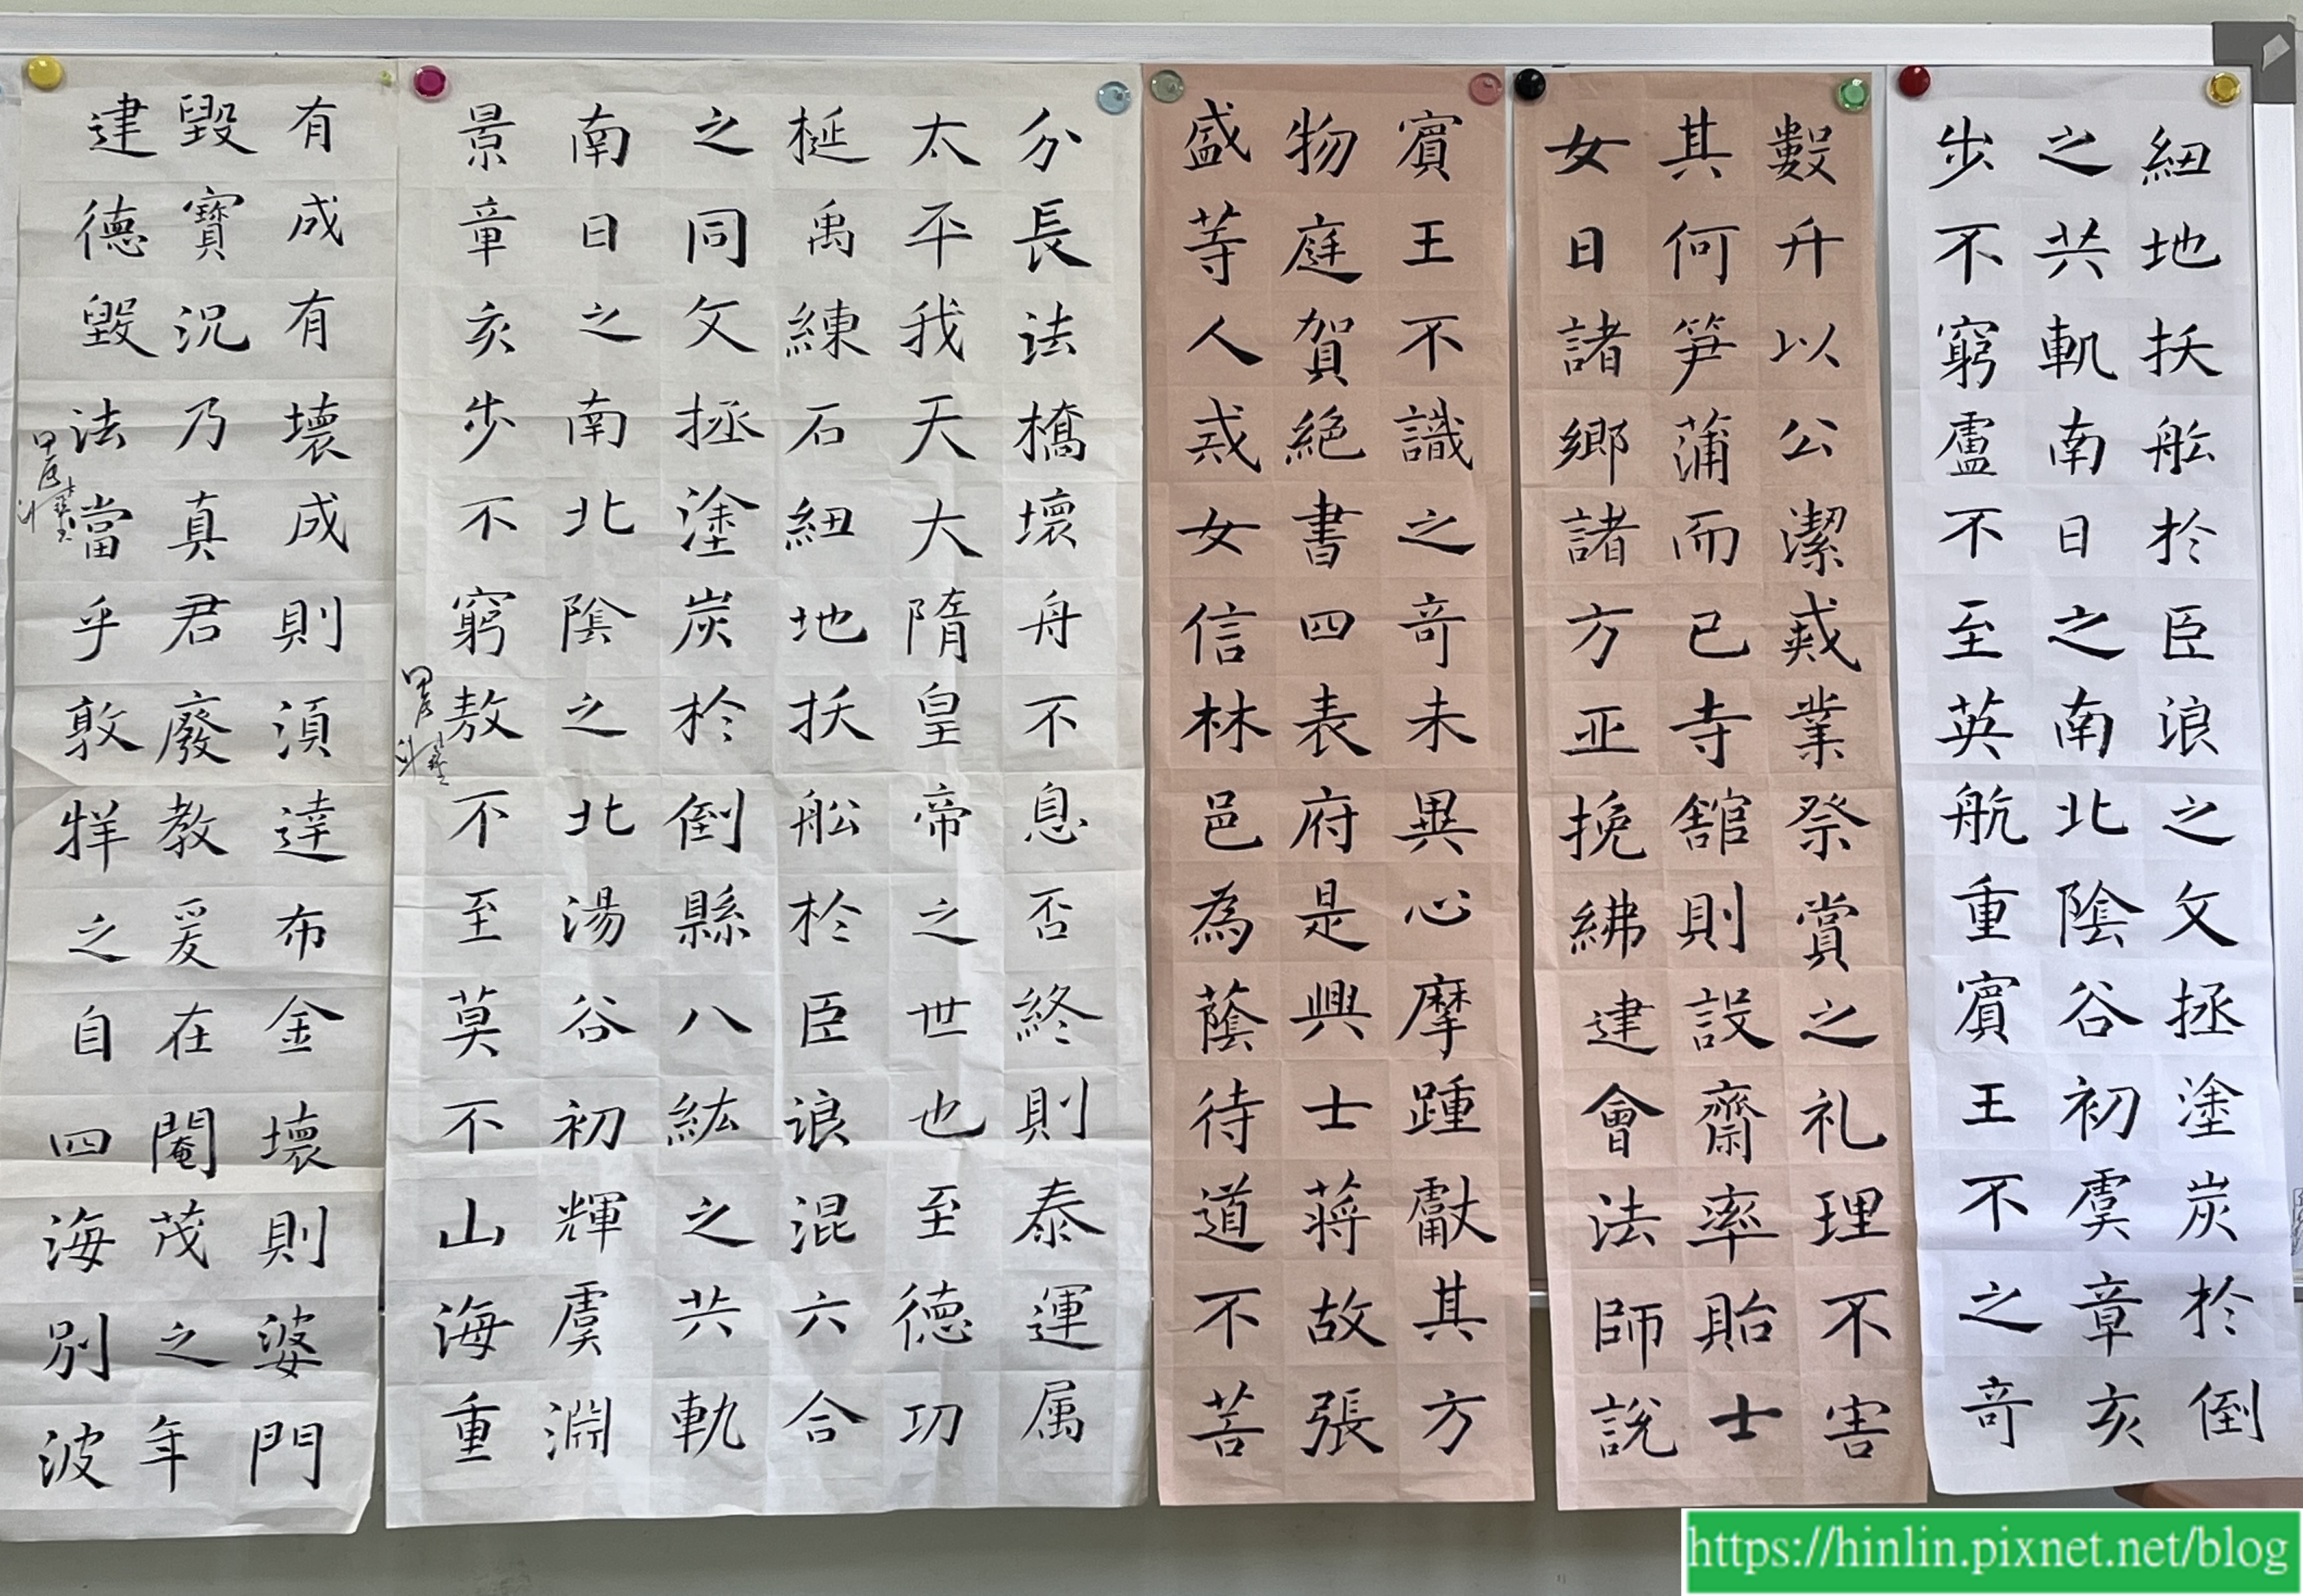 紐地扶舩於臣浪之文拯塗炭於倒
之共軌南日之南北陰谷初虞章亥
步不窮盧不至英航重賓王不之竒
數升以公潔戒業祭賞之礼理不害
其何笋蒲而已寺舘則設齋率貽士
女日諸鄉諸方亚挽紼建會法師説
賓王不識之竒未異心摩踵獻其方
物庭賀絕書四表府是興士蔣故張
盛等人戎女信林邑為蔭待道不苦
分長法橋壞舟不息否終則泰運属
太平我天大隋皇帝之世也至德功
梴禹練石紐地扶舩於臣浪混六合
之同文拯塗炭於倒縣八紘之共軌
南日之南北陰之北湯谷初輝虞淵
景章亥步不窮敖不至莫不山海重
有成有壞成則湏達布金壞則婆門
毀寶況乃真君廢教爰在閹茂之年
建德毀法當乎敦牂之自四海別波
https://hinlin.pixnet.net/blog